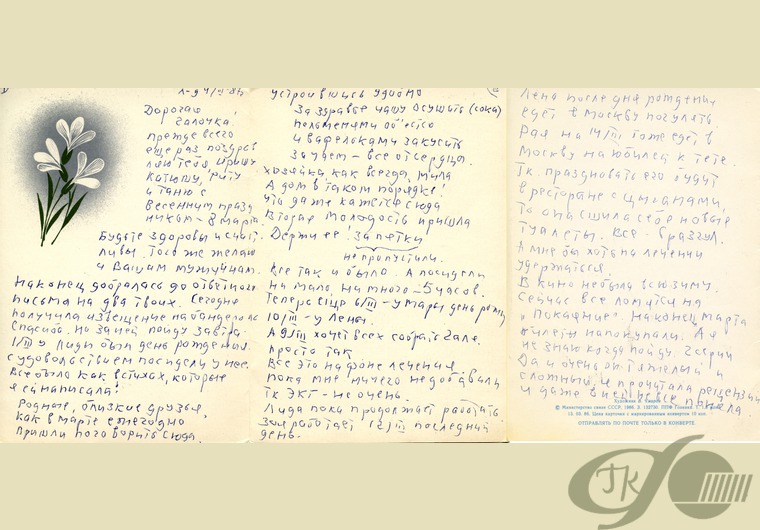 Дорогая
Галочка!
Прежде всего
еще раз поздрав
ляю тебя, Иришу
Катюшу, Риту
и Таню с
весенним празд
ником – 8 марта.
Будьте здоровы и счаст
ливы. Того же желаю
и Вашим мужчинам.
Наконец добралась до ответного
письма на два твоих. Сегодня
получила извещение на бандероль
Спасибо. На за ней пойду завтра.
1/III у Лиды был день рождения.
С удовольствием посидели у нее.
Все было как в стихах, которые
я ей написала:
Родные, близкие друзья,
Как в марте ежегодно
Пришли поговорить сюда
устроившись удобно
За здравье чашу осушить (сока)
Пельменями об'есться
и вафельками закусить
За чаем – все от сердца.
Хозяйка, как всегда, мила
А дом в таком порядке!
Что даже кажется сюда
Вторая молодость пришла
Держи ее! За пятки
не пропустили.
Все так и было. А посидели
ни мало, ни много – 5 часов.
Теперь еще 6/III – у Мары день рожд
10/III – у Лены.
А 9/III хочет всех собрать Галя.
Просто так
Все это на фоне лечения
пока мне ничего не добавили
Тк ЭКГ – не очень.
Лида пока продолжает работать
Зоя работает 12/III последний
день.
Лена после дня рождения
едет в Москву погулять
Рая на 14/III тоже едет в
Москву на юбилей к тете.
Тк. праздновать его будут
в ресторане с цыганами,
то она сшила себе новые
туалеты. Все – бразгул.
А мне бы хоть на лечении
удержаться.
В кино не была всю зиму.
Сейчас все ломится на
„Покаяние". Наконец Марта
билеты напокупали. А я
не знаю когда пойду. 2 серии
Да и очень он тяжелый и
сложный. Я прочитала рецензии
и даже в них не все поняла
Художник
© Министерство связи СССР, 1986. З. 152730. ППФ Гознака.
Цена карточки с маркированным конвертом 10 коп.
ОТПРАВЛЯТЬ ПО ПОЧТЕ ТОЛЬКО В КОНВЕРТЕ.
ГК